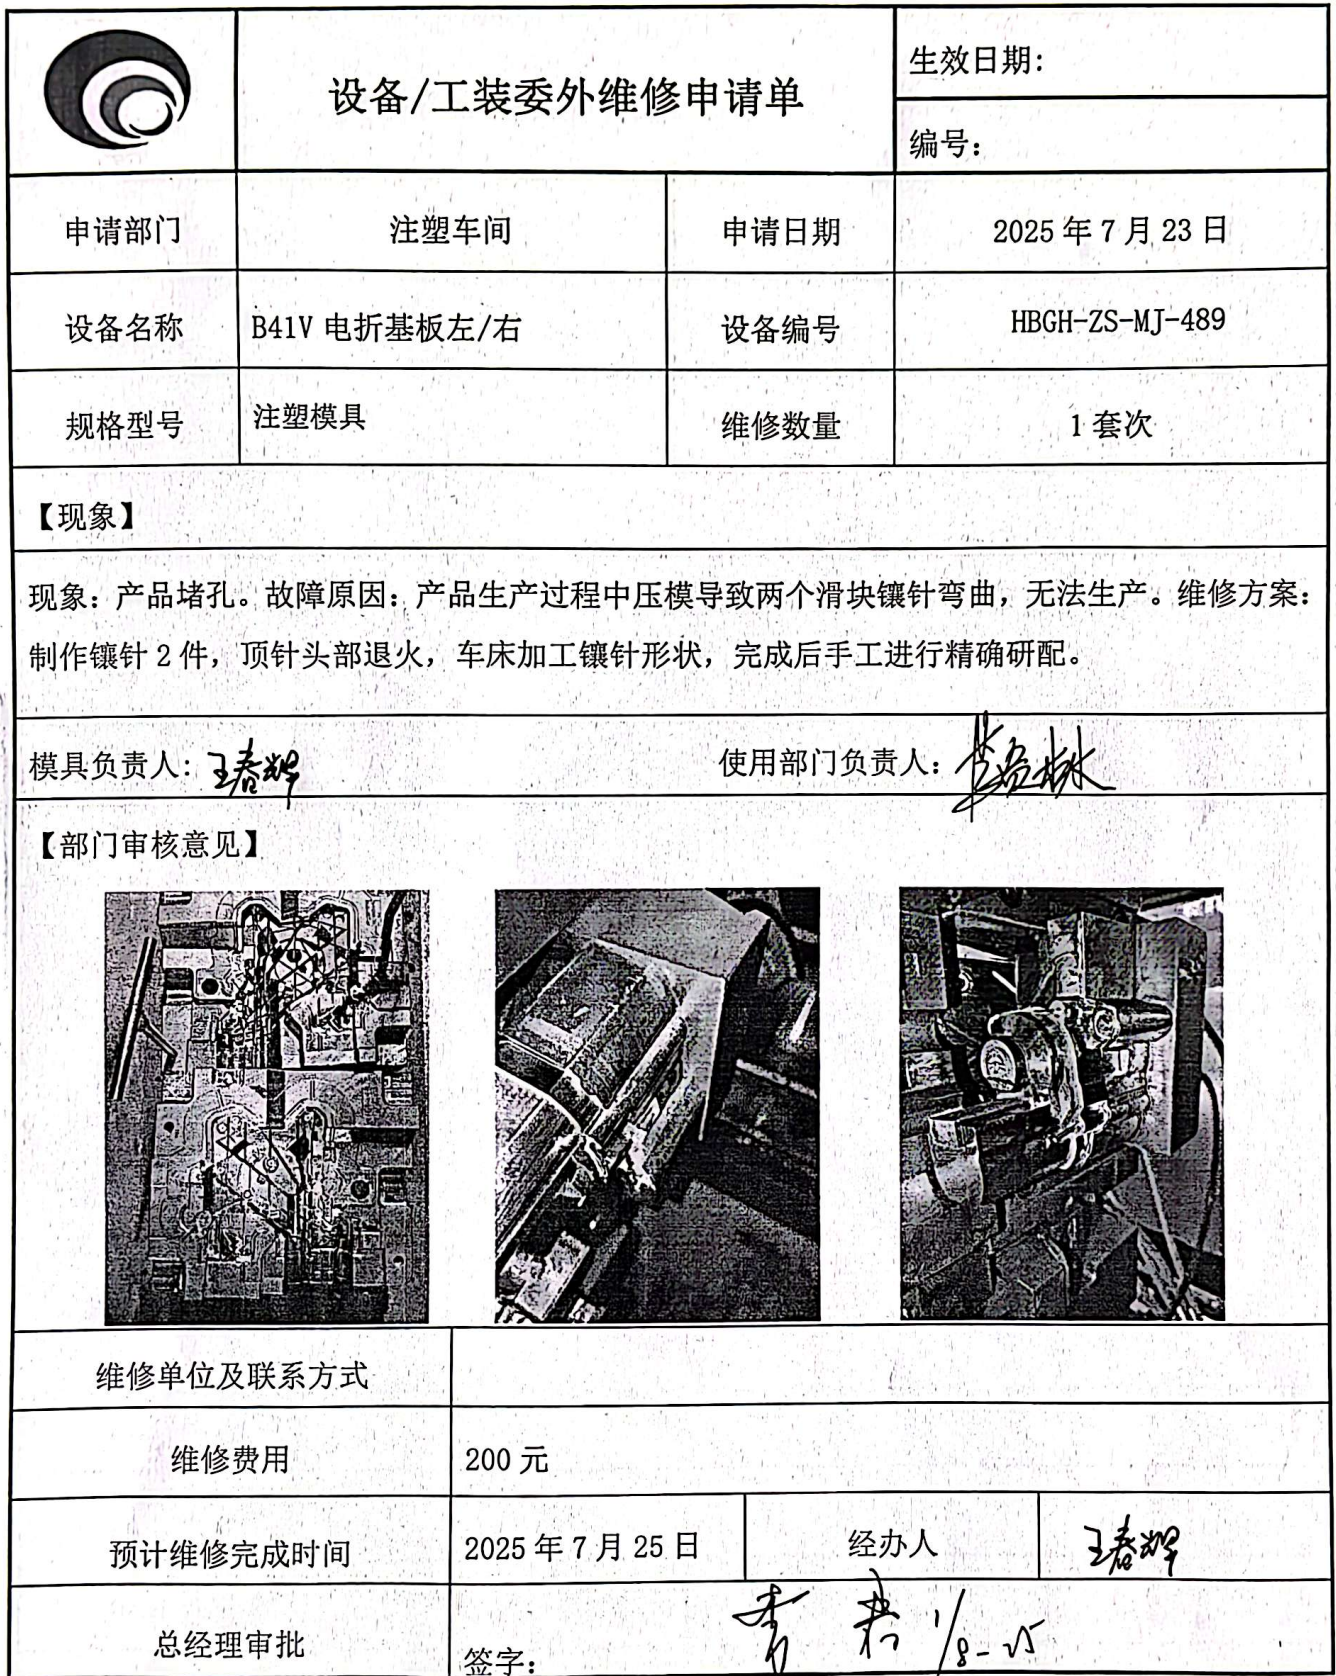 设备/工装委外维修申请单
生效日期:
编号:
申请部门 注塑车间 申请日期 2025年7月23日
设备名称 B41V 电折基板左/右 设备编号 HBGH-ZS-MJ-489
规格型号 注塑模具 维修数量 1套次
【现象】
现象：产品堵孔。故障原因：产品生产过程中压模导致两个滑块镶针弯曲，无法生产。维修方案：
制作镶针2件，顶针头部退火，车床加工镶针形状，完成后手工进行精确研配。
模具负责人: 王春辉 使用部门负责人:
【部门审核意见】
维修单位及联系方式
维修费用 200元
预计维修完成时间 2025年7月25日 经办人 王春辉
总经理审批 签字: 1/8-25